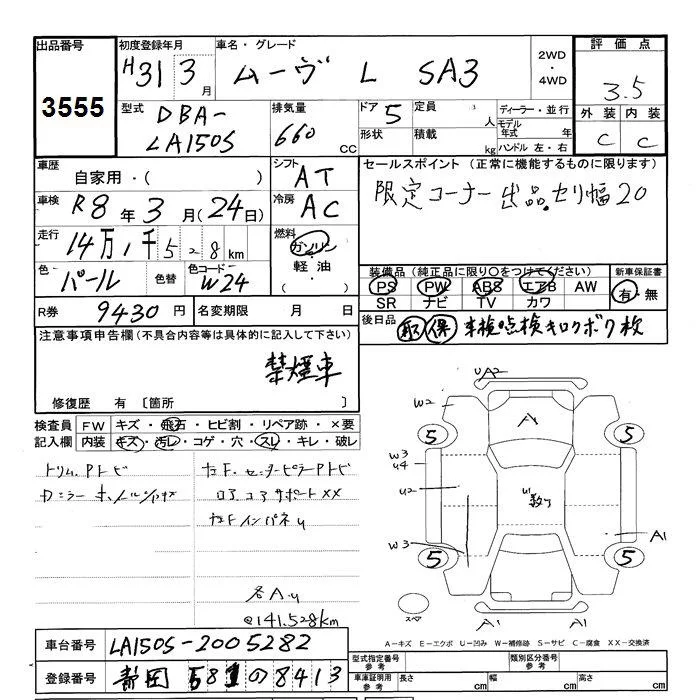 出品番号
3555
初度登録年月
H31 3月
車名・グレード
ムーヴ L SA3
2WD
・
4WD
評価点
3.5
外装 内装
C C
型式
DBA-
LA150S
排気量
660 CC
ドア 5
形状
定員 人
積載 kg
ディーラー・並行
モデル年式 年
ハンドル 左・右
車歴
自家用・( )
シフト
AT
車検
R8年3月(24日)
冷房
AC
走行
14万1千528km
燃料
ガソリン
・
軽油
・
( )
色
パール
色替
色コードNo.
W24
R券
9430円
名変期限 月 日
セールスポイント(正常に機能するものに限ります)
限定コーナー出品.セリ幅20
装備品(純正品に限り○をつけてください)
PS PW ABS エアB AW
SR ナビ TV カワ
新車保証書
有・無
後日品
保 車検点検キロクボ
注意事項申告欄(不具合内容等は具体的に記入して下さい)
禁煙車
修復歴 有〔箇所
検査員
記入欄
FW キズ・飛石・ヒビ割・リペア跡・×要
内装 キズ・汚レ・コゲ・穴・スレ・キレ・破レ
トリム.Pトビ
センターピラーPトビ
コアサポートXX
インパネU
各A.U
@141.528km
UA2
W2
A
5
5
W3
U4
U2
W3
U
数ケ
A1
5
5
スペア
A1
A1
A=キズ E=エクボ U=凹み W=補修跡 S=サビ C=腐食 XX=交換済
車台番号
LA150S-2005282
登録番号
静岡 581 の 8413
型式指定番号
参考
類別区分番号
参考
車庫証明用
参考
長さ cm
幅 cm
高さ cm